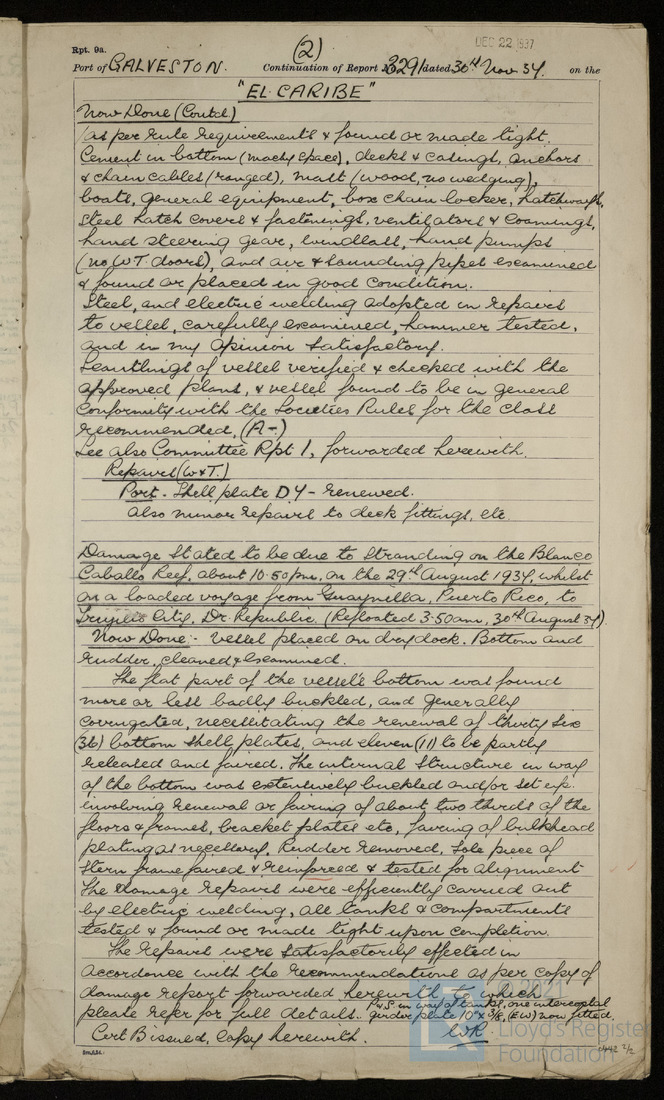 DEC 22 1937
Rpt. 9a.
(2)
Port of GALVESTON. Continuation of Report No 3291 dated 30th Nov 34. on the
"EL CARIBE"
Now Done (Contd.)
as per rule requirements & found or made tight.
Cement in bottom (machy space), decks & casings, anchors
& chain cables (ranged), mast (wood, no wedging),
boats, general equipment, box chain locker, hatchways,
steel hatch covers & fastenings, ventilators & coamings,
hand steering gear, windlass, hand pumps
(no W.T. doors), and air & sounding pipes examined
& found or placed in good condition.
Steel, and electric welding adopted in repairs
to vessel, carefully examined, hammer tested,
and in my opinion satisfactory.
Scantlings of vessel verified & checked with the
approved plans, & vessel found to be in general
conformity with the Societies Rules for the class
recommended, (A-)
See also Committee Rpt 1, forwarded herewith.
Repairs (W&T.)
Port - Shell plate D4 - renewed.
Also minor repairs to deck fittings, etc.
Damage stated to be due to stranding on the Blanco
Caballo Reef, about 10.50 pm, on the 29th August 1934, whilst
on a loaded voyage from Guaynilla, Puerto Rico, to
Trujillo City, Dr. Republic. (Refloated 3.50am, 30th August 34)
Now Done:- Vessel placed on drydock. Bottom and
rudder, cleaned & examined.
The flat part of the vessel's bottom was found
more or less badly buckled, and generally
corrugated, necessitating the renewal of thirty six
(36) bottom shell plates, and eleven (11) to be partly
released and faired. The internal structure in way
of the bottom was extensively buckled and/or set up.
involving renewal or fairing of about two thirds of the
floors & frames, bracket plates etc, fairing of bulkhead
plating as necessary. Rudder removed, sole piece of
stern frame faired & reinforced & tested for alignment
The damage repairs were efficiently carried out
by electric welding, all tanks & compartments
tested & found or made tight upon completion.
The repairs were satisfactorily effected in
accordance with the recommendations as per copy of
damage report forwarded herewith to which
please refer for full details. P&S in way of tanks, one intercostal
girder plate 10" x 3/8, (EW) now fitted.
Cert B issued, copy herewith. WR
© 2021
Lloyd's Register
Foundation